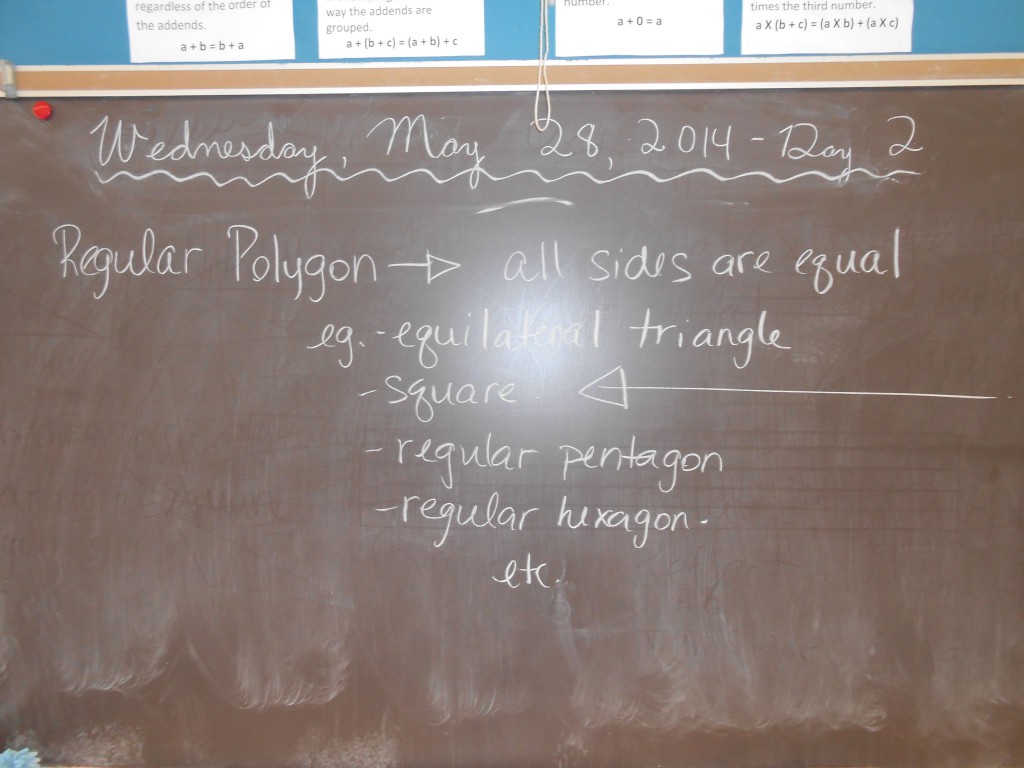 regardless of the order of
the addends.
a + b = b + a
way the addends are
grouped.
a + (b + c) = (a + b) + c
number.
a + 0 = a
times the third number.
a X (b + c) = (a X b) + (a X c)
Wednesday, May 28, 2014 - Day 2
Regular Polygon → all sides are equal
eg. - equilateral triangle
- square
- regular pentagon
- regular hexagon.
etc.